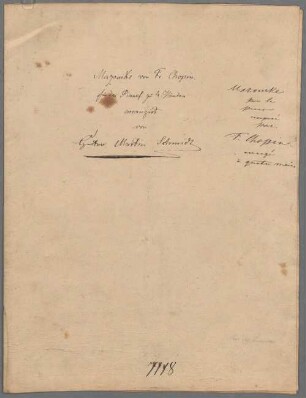 Mazourka von Fr. Chopin
für Pianof. zu 4 Händen
arrangirt
von
Gustav Martin Schmidt
Mazourka
pour le
Piano
composé
par
F. Chopin
arrangé
à quatre mains
1148